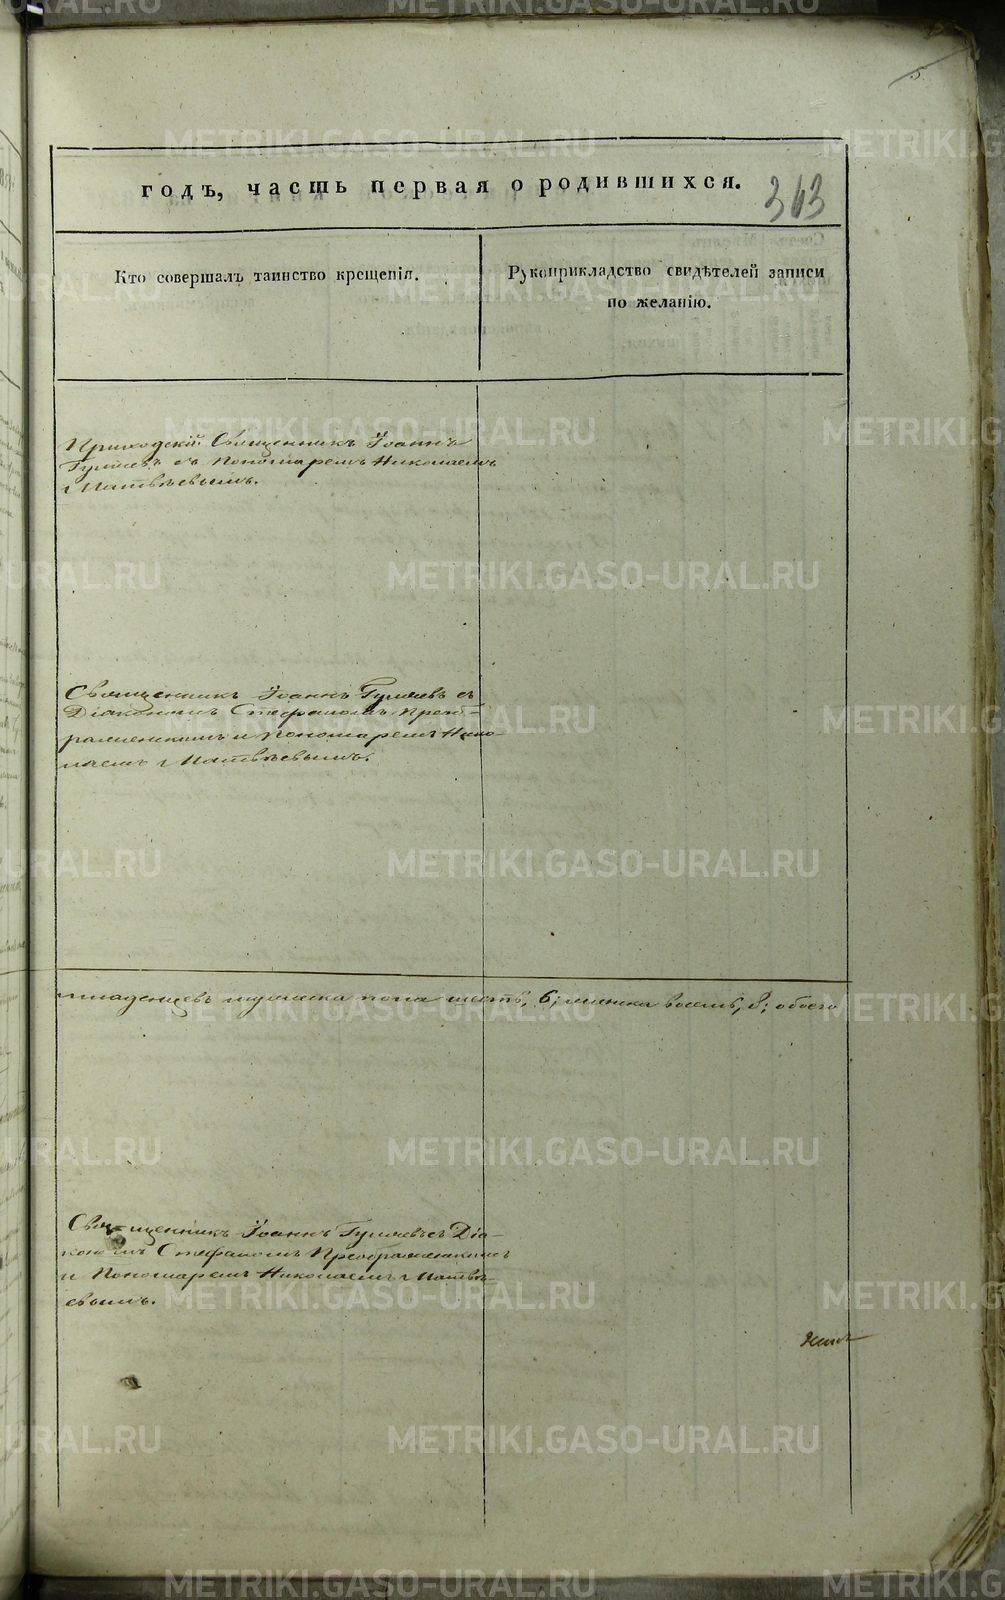 5.
годъ, часть первая о родившихся.
343
Кто совершалъ таинство крещенія.
Рукоприкладство свидѣтелей записи
по желанію.
Приходскій Священникъ Іоаннъ
Гуляевъ съ Пономаремъ Николаемъ
Матвѣевымъ.
Священникъ Іоаннъ Гуляевъ съ
Діакономъ Стефаномъ Преоб-
раженскимъ и Пономаремъ Нико-
лаемъ Матвѣевымъ.
младенцевъ мужеска пола шесть, 6; женска восемь, 8; обоего
Священникъ Іоаннъ Гуляевъ съ Діа-
кономъ Стефаномъ Преображенскимъ
и Пономаремъ Николаемъ Матвѣ-
евымъ.
METRIKI.GASO-URAL.RU